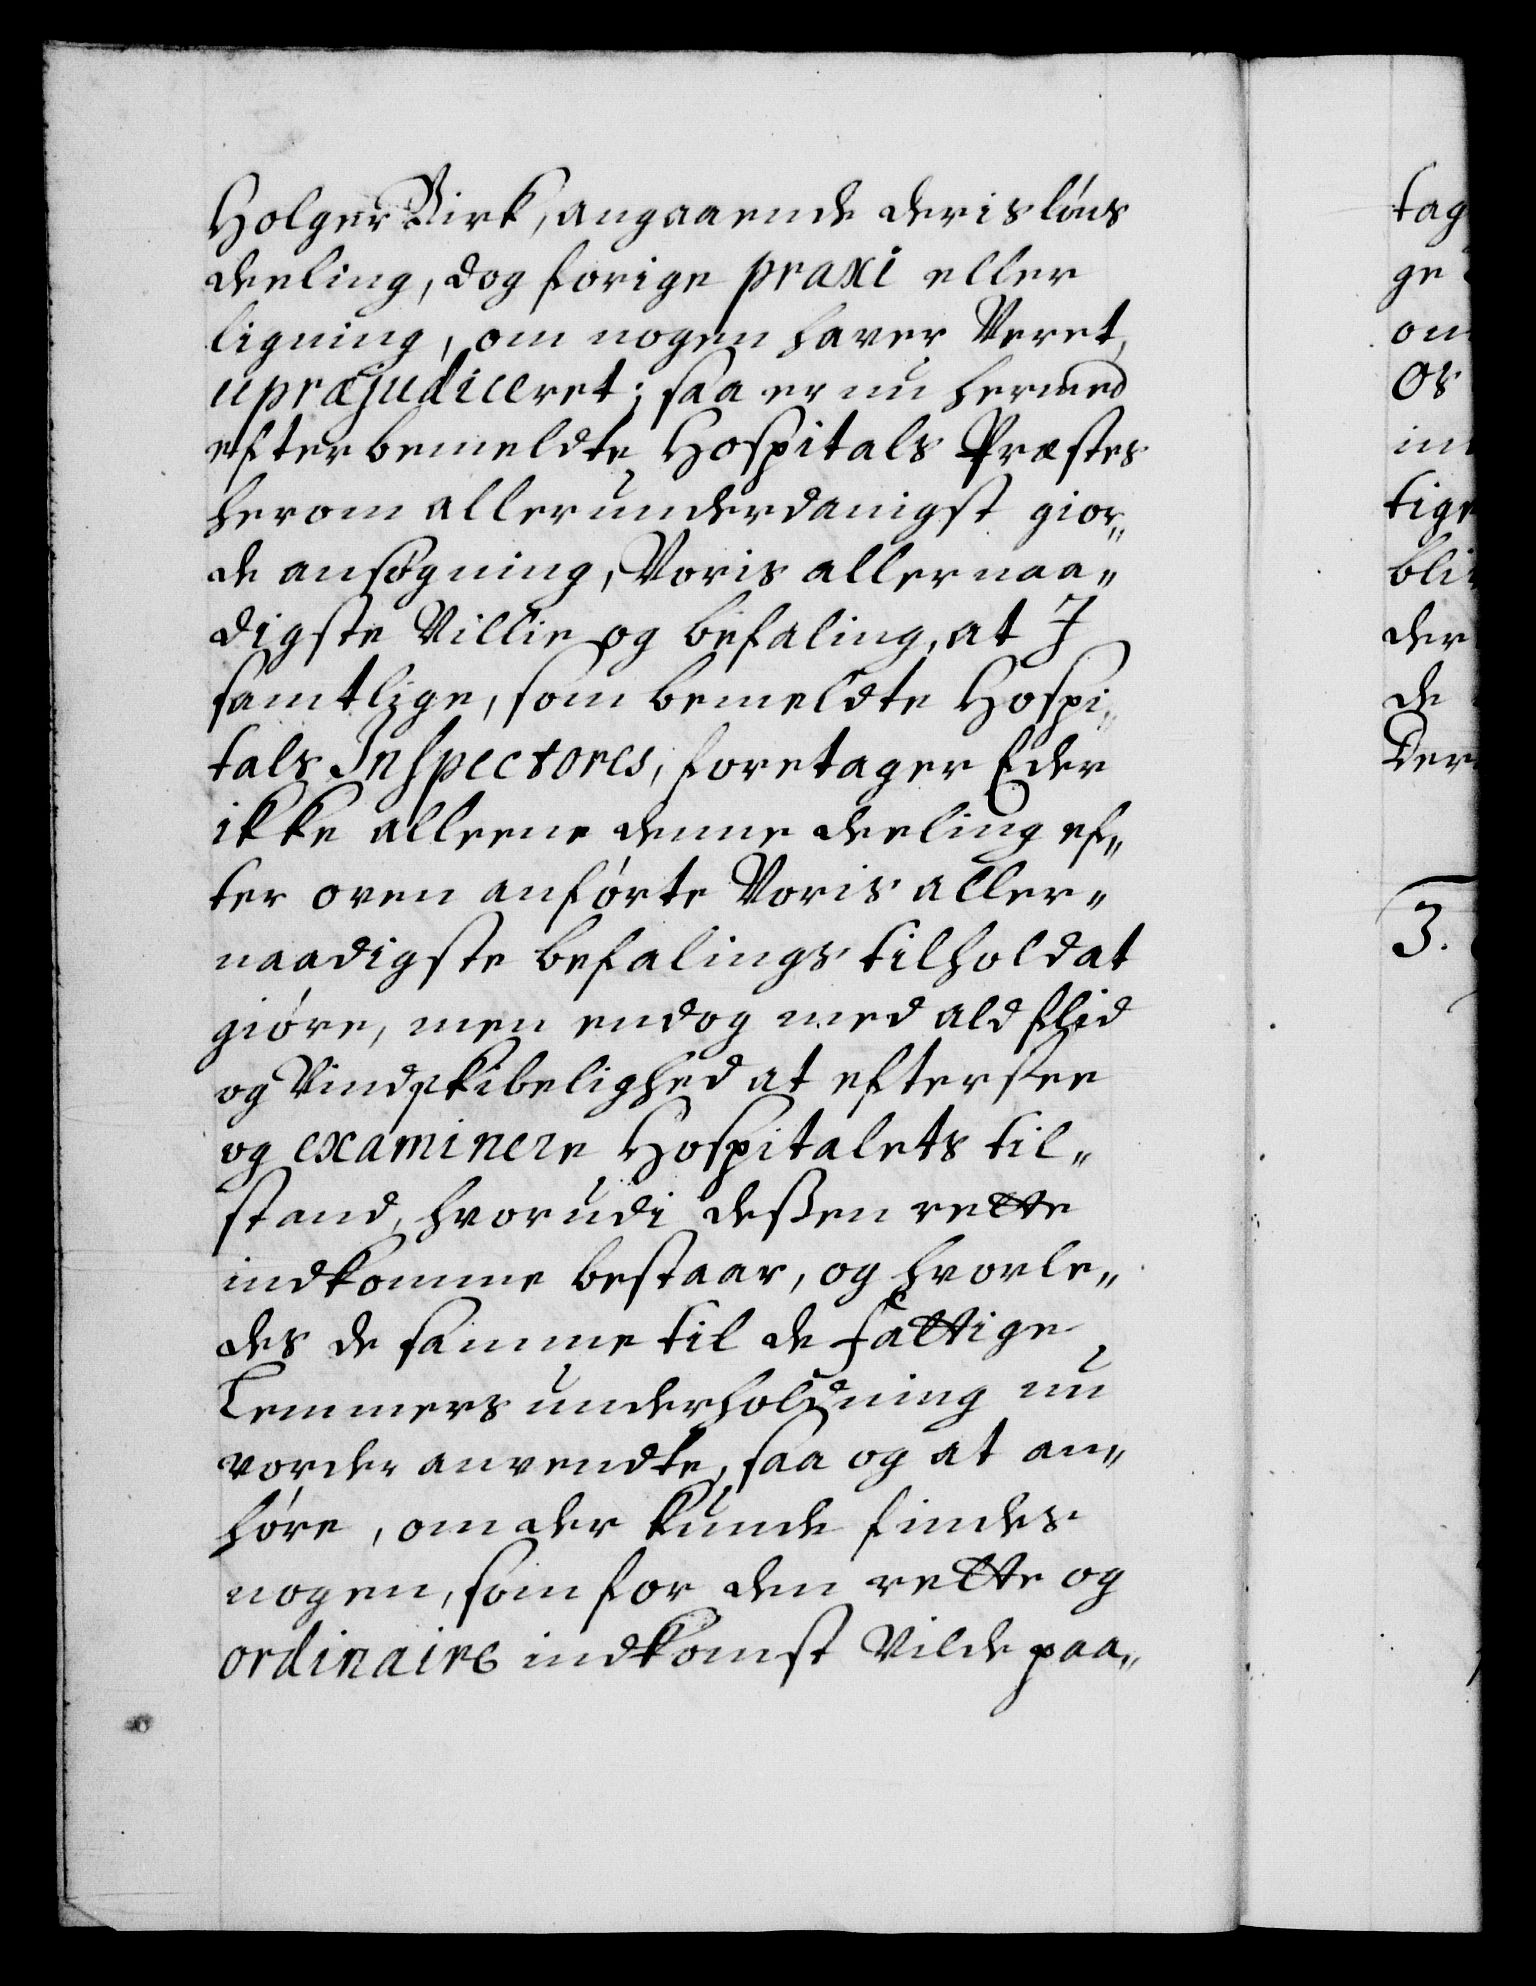 Holger Birk, angaaende deris løns
deeling, dog forige praxi eller
ligning, om nogen hafver Veret,
upræjudiceret; saa er nu hermed
efter bemeldte Hospitals Præstes
herom allerunderdanigst gior„
de ansøgning, Voris allernaa„
digste Villie og befaling, at I
samtlige, som bemeldte Hospi„
tals Inspectores, foretager Eder
ikke alleene denne deeling ef„
ter oven anførte Voris aller„
naadigste befalings tilhold at
giøre, men endog med ald flid
og Vindskibelighed at eftersee
og examinere Hospitalets til„
stand, hvorudi deßen rette
indkomme bestaar, og hvorle„
des de samme til de fattige
Lemmers underholdning nu
vorder anvendte, saa og at an„
høre, om der kunde findes
nogen, som for den rette og
ordinaire indkomst Vilde paa„
tag
ge
om
Os
ind
tige
bliv
der
de
Der
3.